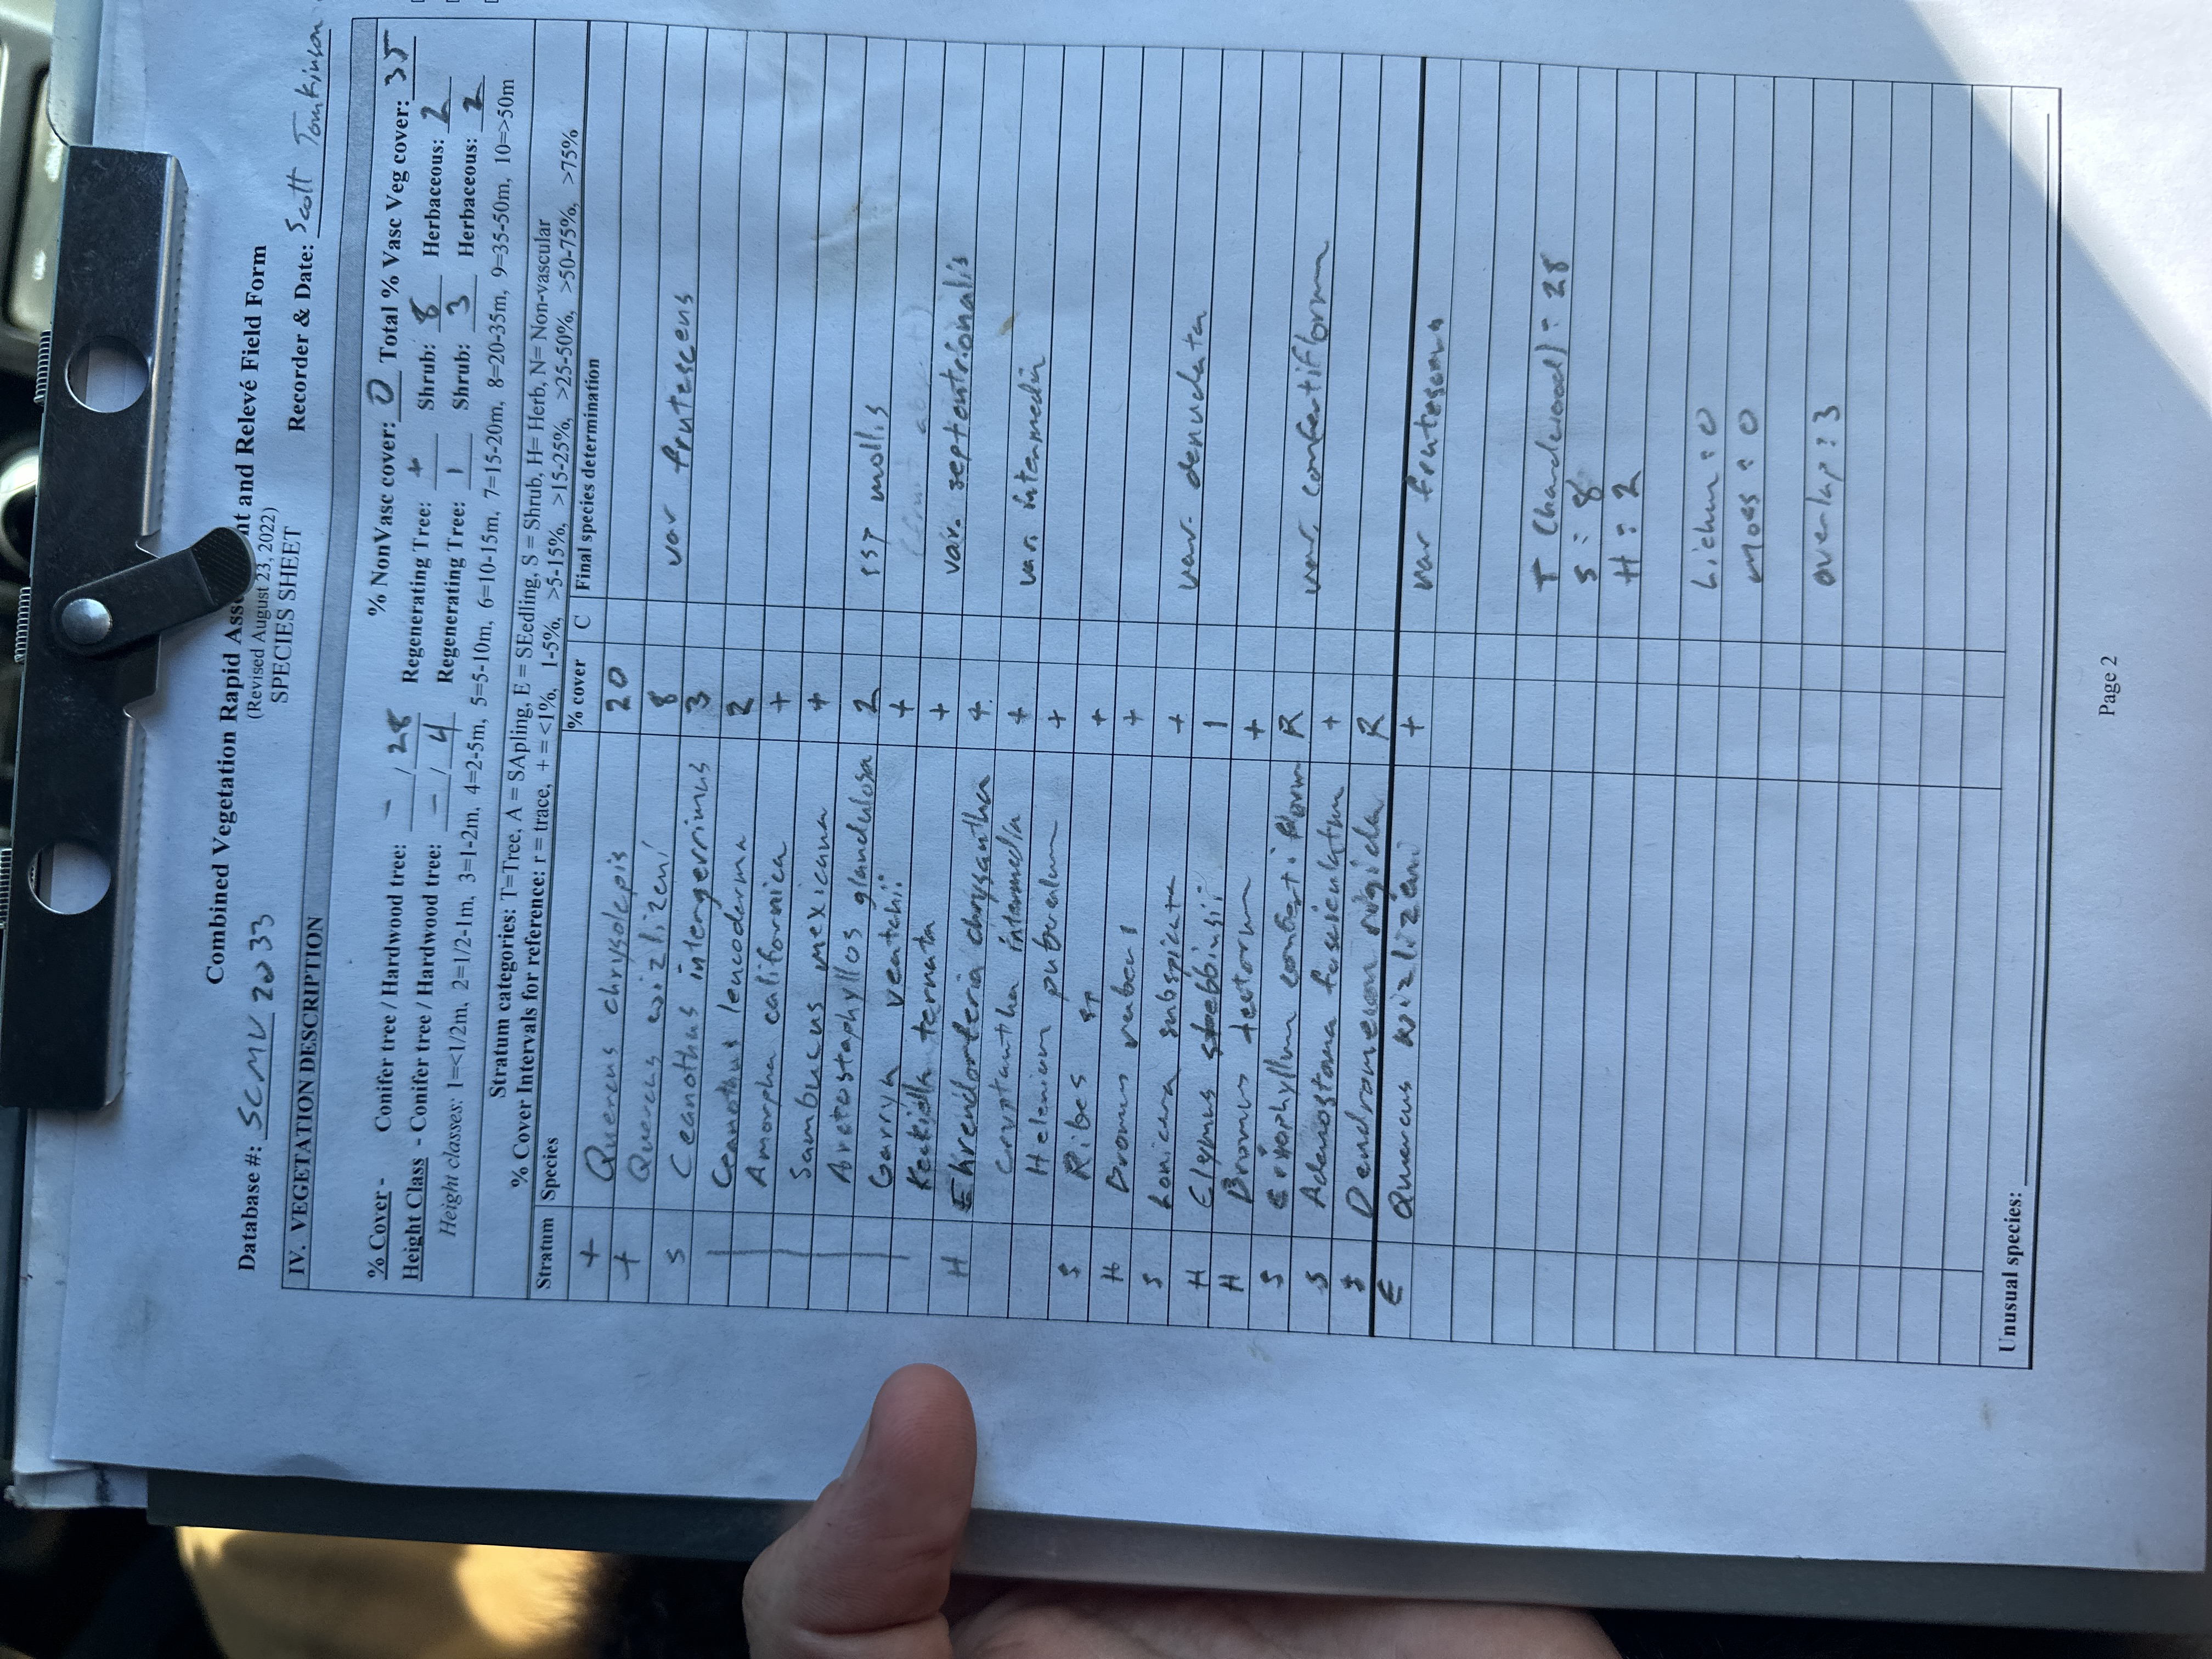 Combined Vegetation Rapid Ass nt and Relevé Field Form
(Revised August 23, 2022)
SPECIES SHEET
Database #: SCMV 2033 Recorder & Date: Scott Tomkinson
IV. VEGETATION DESCRIPTION
% NonVasc cover: 0 Total % Vasc Veg cover: 35
% Cover - Conifer tree / Hardwood tree: - / 28 Regenerating Tree: + Shrub: 8 Herbaceous: 2
Height Class - Conifer tree / Hardwood tree: - / 4 Regenerating Tree: 1 Shrub: 3 Herbaceous: 2
Height classes: 1=<1/2m, 2=1/2-1m, 3=1-2m, 4=2-5m, 5=5-10m, 6=10-15m, 7=15-20m, 8=20-35m, 9=35-50m, 10=>50m
Stratum categories: T=Tree, A = SApling, E = SEedling, S = Shrub, H= Herb, N= Non-vascular
% Cover Intervals for reference: r = trace, + = <1%, 1-5%, >5-15%, >15-25%, >25-50%, >50-75%, >75%
Stratum Species % cover C Final species determination
T Quercus chrysolepis 20
T Quercus wizlizeni 8 var frutescens
S Ceanothus intergerrimus 3
Ceanothus leucoderma 2
Amorpha californica +
Sambucus mexicana +
Arctostaphyllos glandulosa 2 ssp mollis
Garrya veatchii +
Keckiella ternata +
H Ehrendorferia chrysantha + var. septiontrionalis
Cryptantha intermedia + var. intermedia
Helenium puberulum +
S Ribes sp +
H Bromus rubens +
S Lonicera subspicata + var. denudata
H Elymus stebbinsii 1
H Bromus tectorum +
S Eriophyllum confertiflorum R var. confertiflorum
S Adenostoma fasciculatum +
S Dendromecon rigida R
E Quercus wizlizeni + var frutescens
T (hardwood): 28
S: 8
H: 2
Lichen: 0
Moss: 0
overlap: 3
Unusual species:
Page 2